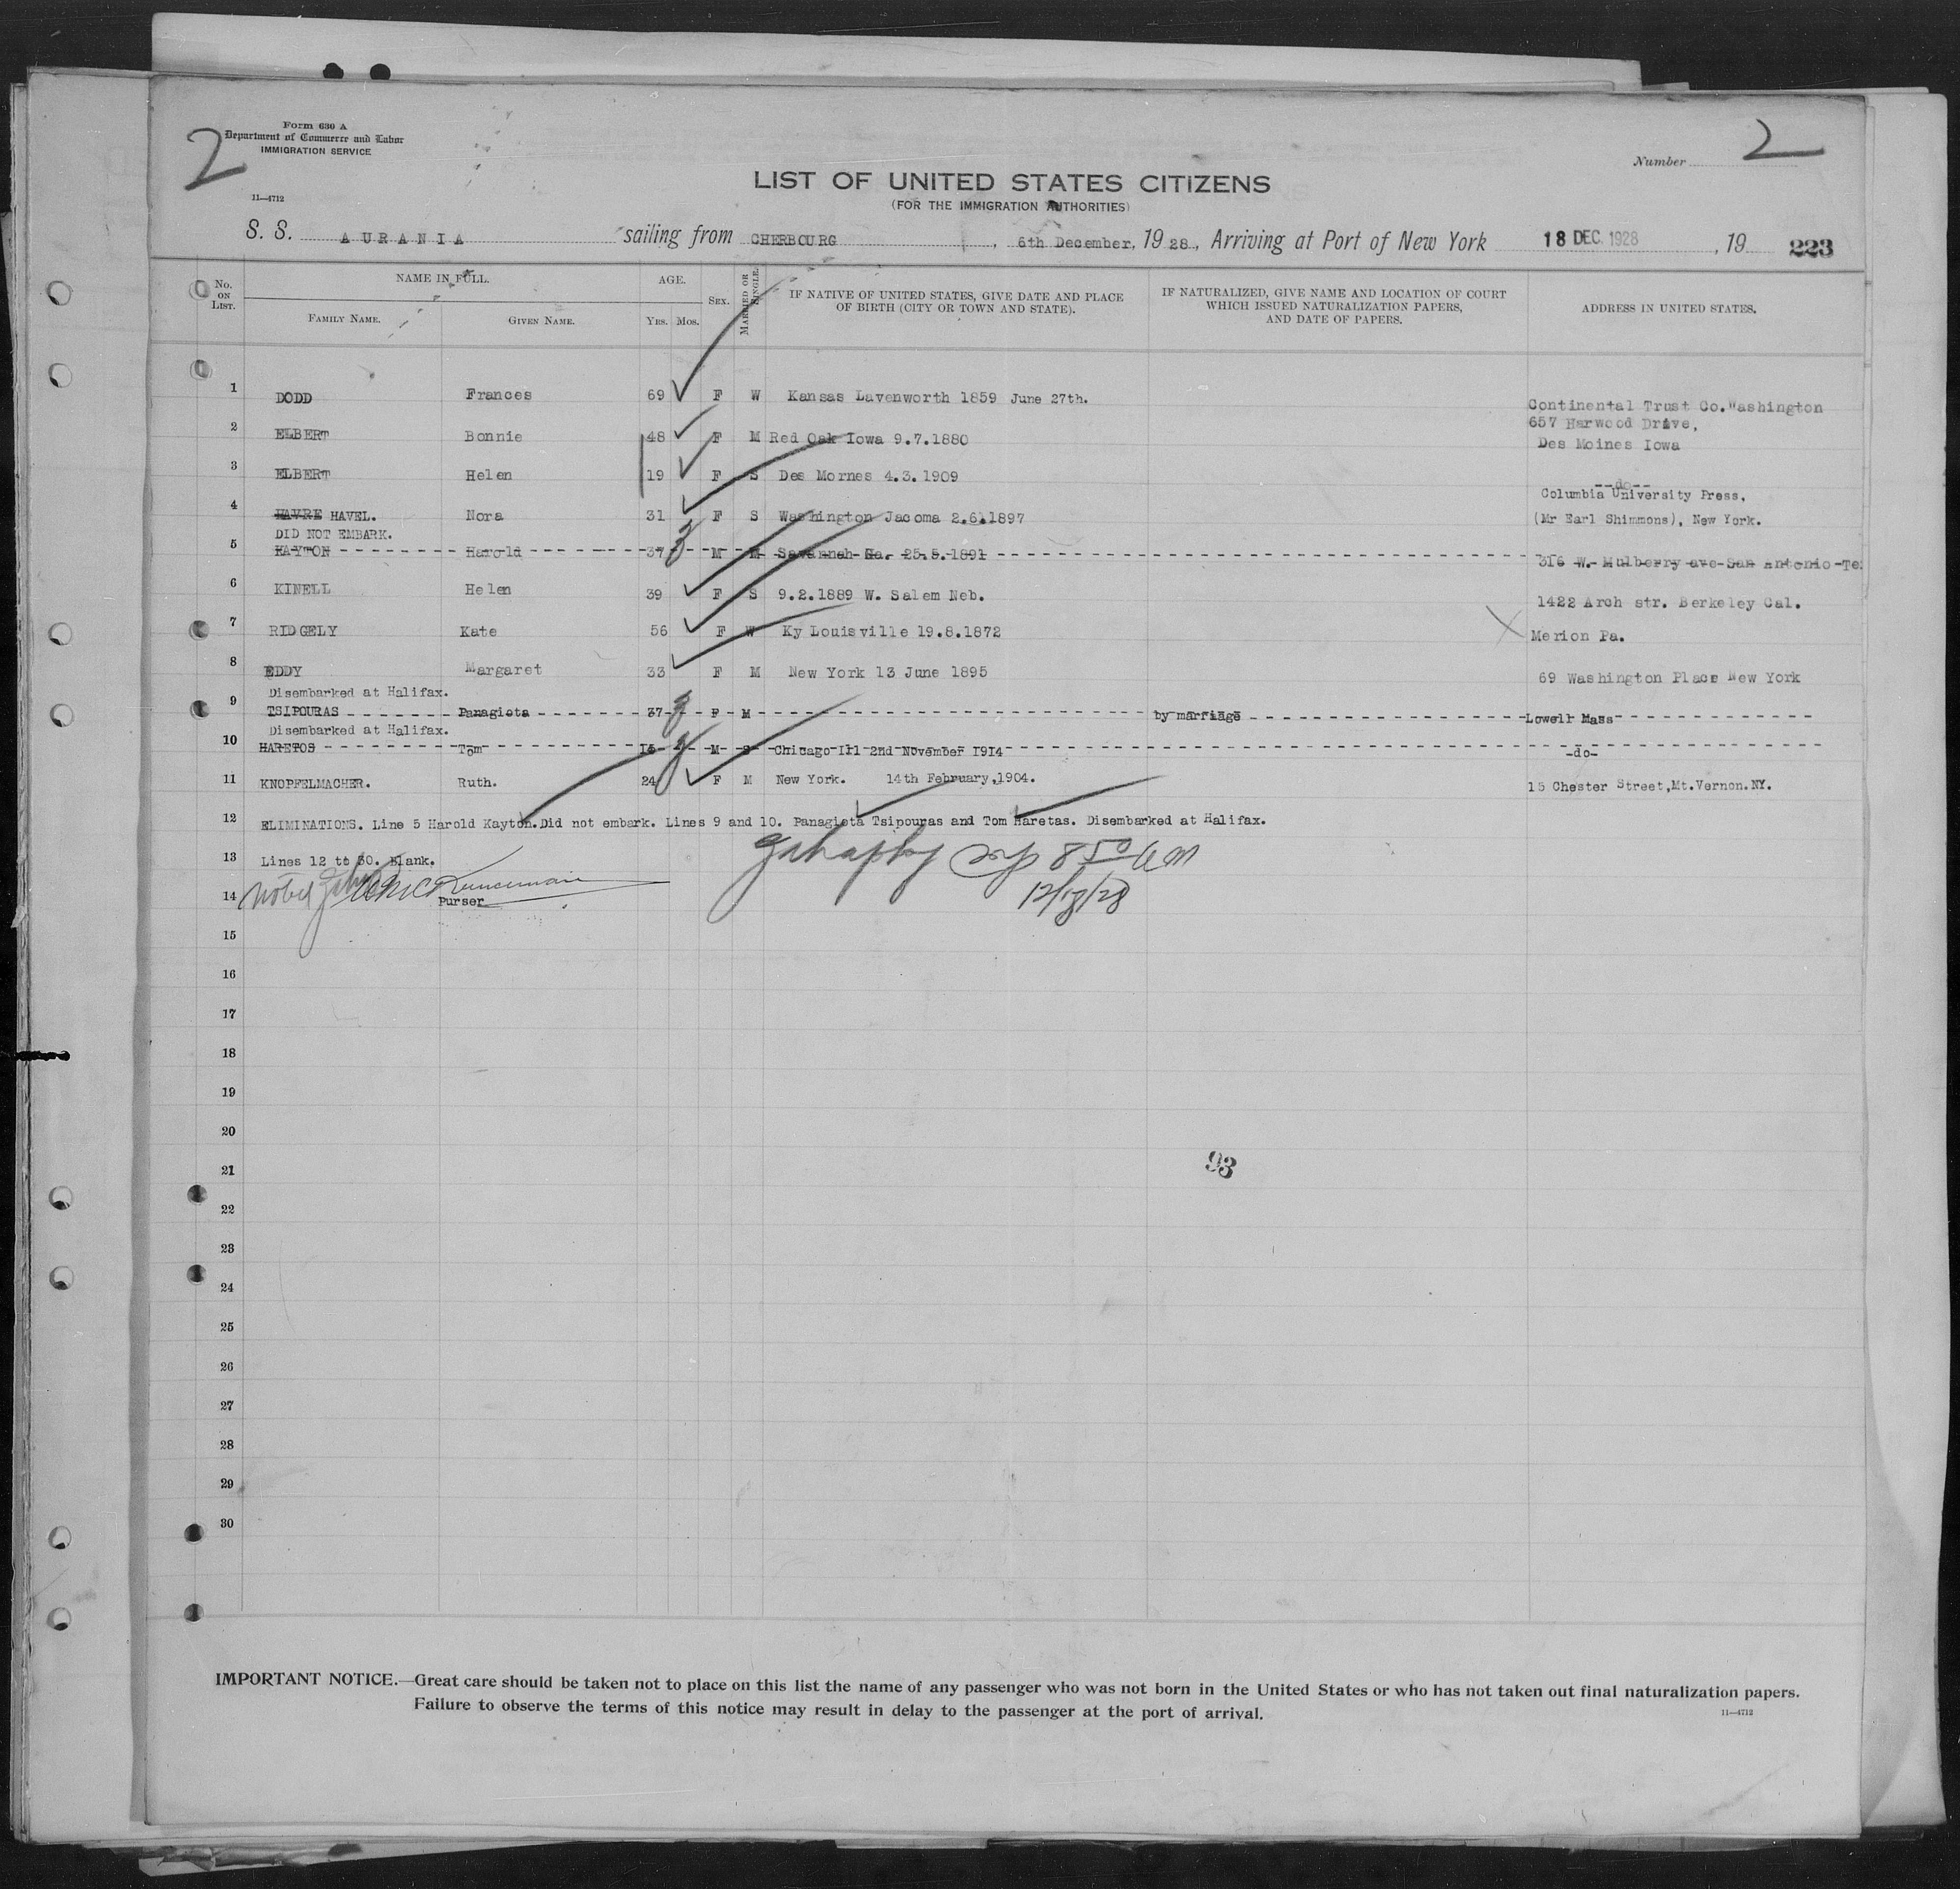 2
Form 630 A
Department of Commerce and Labor
IMMIGRATION SERVICE
11—4712
Number 2
LIST OF UNITED STATES CITIZENS
(FOR THE IMMIGRATION AUTHORITIES)
S. S. AURANIA sailing from CHERBOURG, 6th December, 1928, Arriving at Port of New York 18 DEC. 1928, 19 223
No. ON LIST. NAME IN FULL. FAMILY NAME. GIVEN NAME. AGE. YRS. MOS. SEX. MARRIED OR SINGLE. IF NATIVE OF UNITED STATES, GIVE DATE AND PLACE OF BIRTH (CITY OR TOWN AND STATE). IF NATURALIZED, GIVE NAME AND LOCATION OF COURT WHICH ISSUED NATURALIZATION PAPERS, AND DATE OF PAPERS. ADDRESS IN UNITED STATES.
1 DODD Frances 69 F W Kansas Lavenworth 1859 June 27th. Continental Trust Co.Washington
2 ELBERT Bonnie 48 F M Red Oak Iowa 9.7.1880 657 Harwood Drive,
Des Moines Iowa
3 ELBERT Helen 19 F S Des Mornes 4.3.1909 --do--
Columbia University Press,
4 HAVRE HAVEL. Nora 31 F S Washington Jacoma 2.6.1897 (Mr Earl Shimmons), New York.
DID NOT EMBARK.
5 KAYTON Harold 37 M M Savannah Ga. 25.5.1891 316 W. Mulberry ave San Antonio Te
6 KINELL Helen 39 F S 9.2.1889 W. Salem Neb. 1422 Arch str. Berkeley Cal.
7 RIDGELY Kate 56 F W Ky Louisville 19.8.1872 Merion Pa.
8 EDDY Margaret 33 F M New York 13 June 1895 69 Washington Place New York
Disembarked at Halifax.
9 TSIPOURAS Panagiota 37 F M by marriage Lowell Mass
Disembarked at Halifax.
10 HARETOS Tom 14 M S Chicago Ill 2nd November 1914 -do-
11 KNOPFELMACHER. Ruth. 24 F M New York. 14th February,1904. 15 Chester Street,Mt.Vernon.NY.
12 ELIMINATIONS. Line 5 Harold Kayton.Did not embark. Lines 9 and 10. Panagieta Tsipouras and Tom Haretas. Disembarked at Halifax.
13 Lines 12 to 30. Blank.
12/18/28
14 Purser
15
16
17
18
19
20
21
93
22
23
24
25
26
27
28
29
30
IMPORTANT NOTICE.—Great care should be taken not to place on this list the name of any passenger who was not born in the United States or who has not taken out final naturalization papers.
Failure to observe the terms of this notice may result in delay to the passenger at the port of arrival.
11—4712